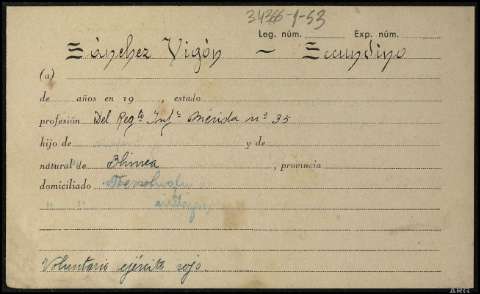 34366-1-53
Leg. núm. Exp. núm.
Sánchez Vigón – Secundino
(a)
de años en 19 , estado
profesión Del Regto Infa Mérida nº 35
hijo de y de
natural de , provincia
domiciliado
Voluntario ejército rojo.